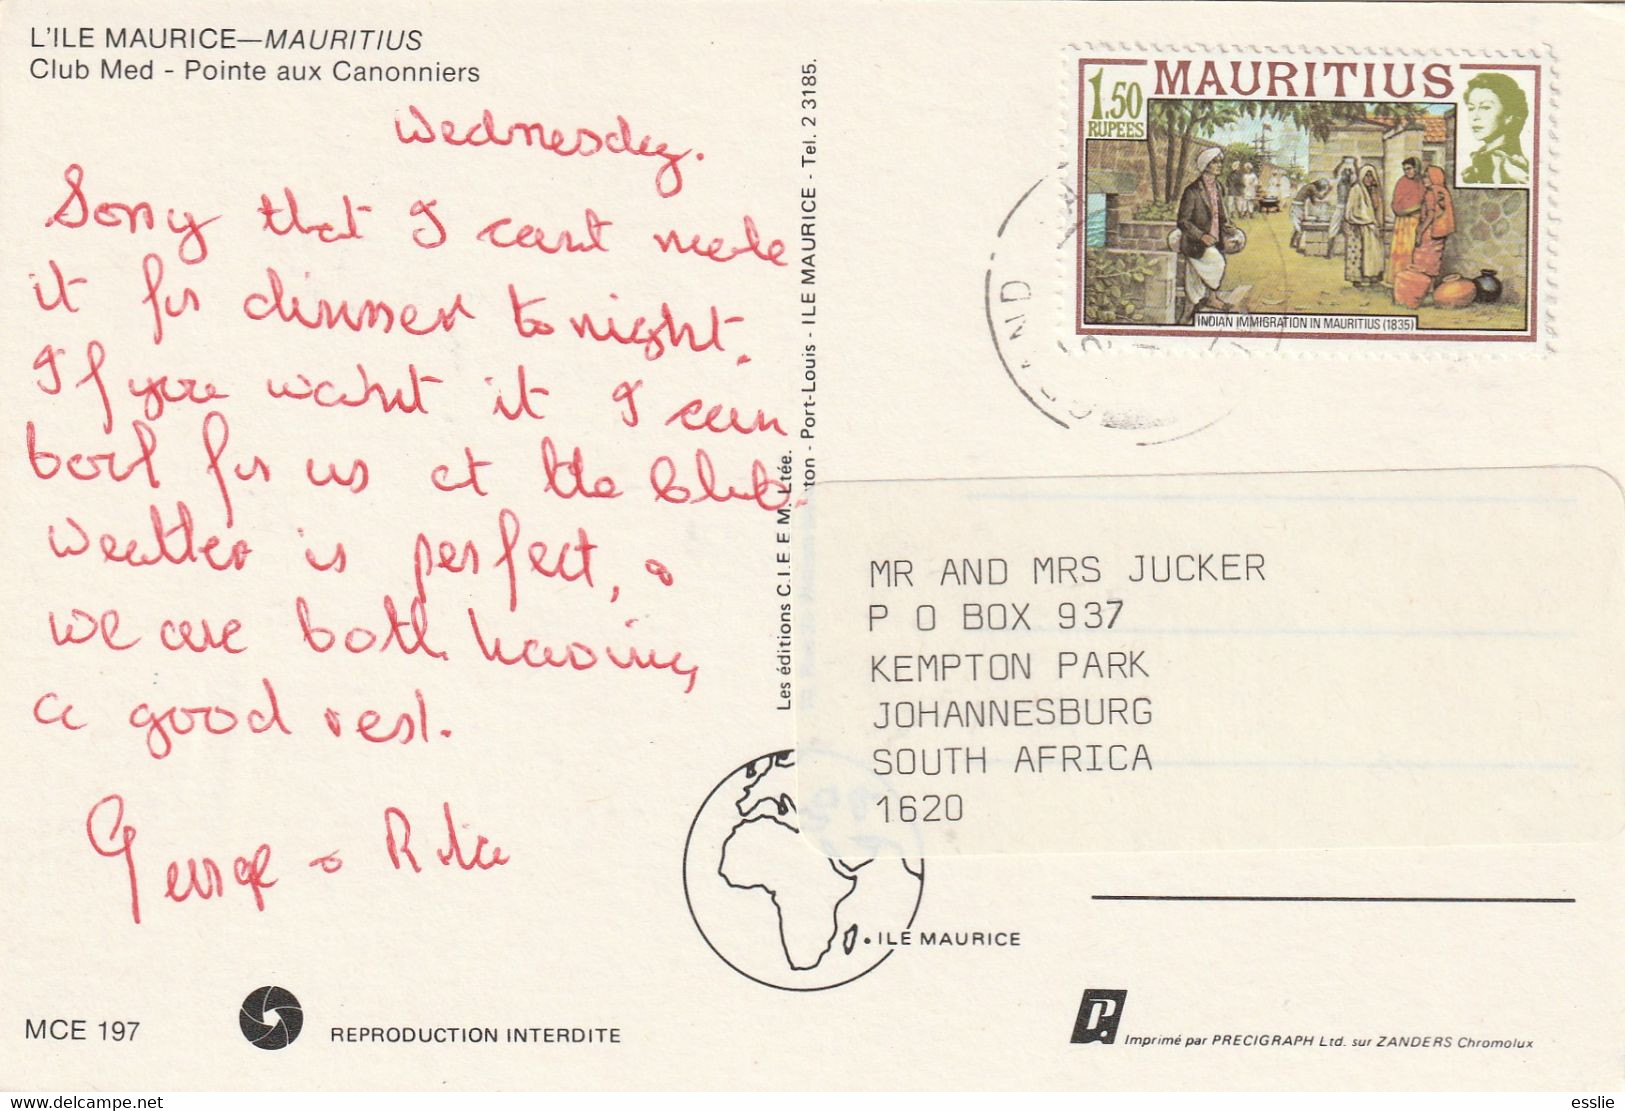 L'ILE MAURICE—MAURITIUS
Club Med - Pointe aux Canonniers
Wednesday.
Sorry that I can't make
it for dinner tonight.
If you want it I can
book for us at the Club.
Weather is perfect, &
we are both having
a good rest.
George & Rita
MCE 197
REPRODUCTION INTERDITE
Les éditions C.I.E E M. Ltée.
ton - Port-Louis - ILE MAURICE - Tel. 2 3185.
1.50
RUPEES
MAURITIUS
INDIAN IMMIGRATION IN MAURITIUS (1835)
MR AND MRS JUCKER
P O BOX 937
KEMPTON PARK
JOHANNESBURG
SOUTH AFRICA
1620
ILE MAURICE
P.
Imprimé par PRECIGRAPH Ltd. sur ZANDERS Chromolux
delcampe.net
esslie